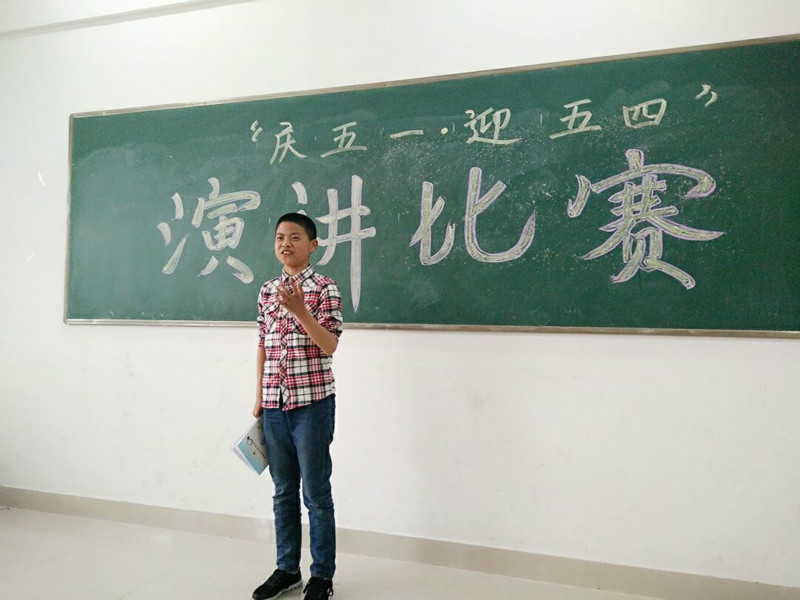 “庆五一·迎五四”
演讲比赛